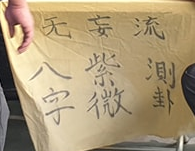 无妄流
八字
紫微
測卦